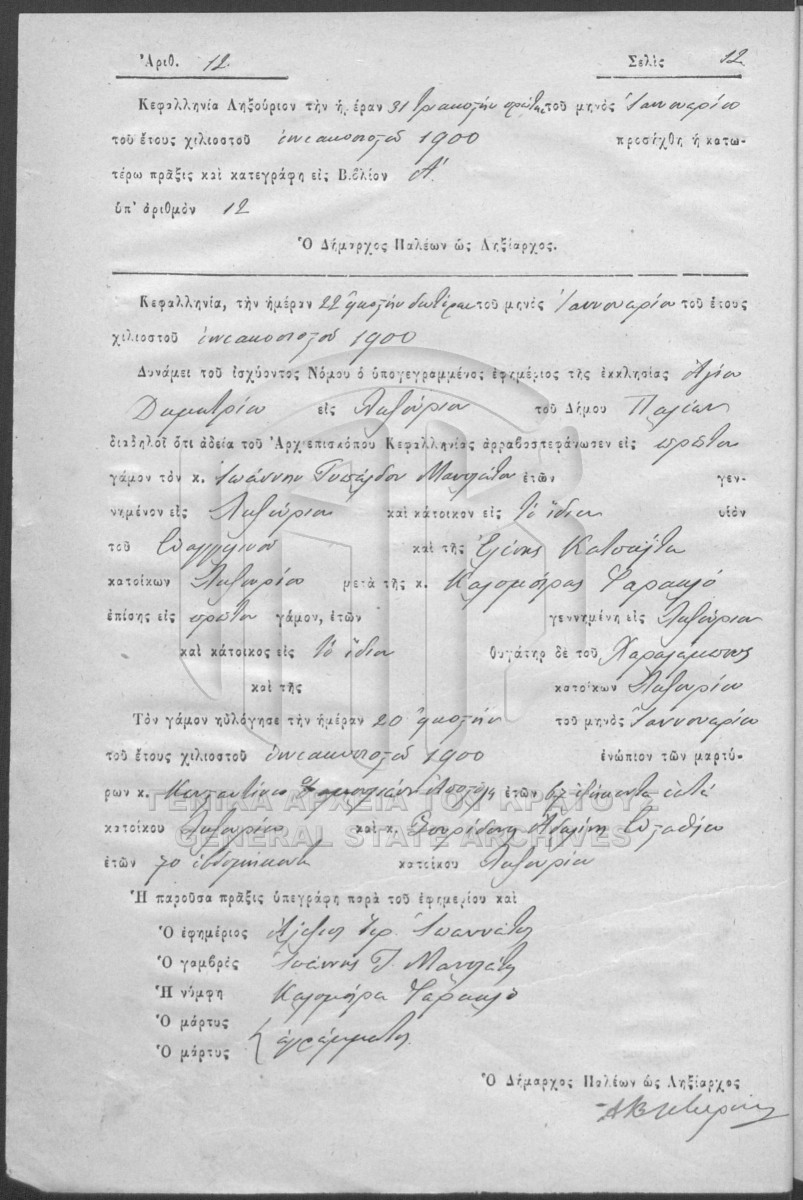 Ἀριθ. 12 Σελὶς 12
Κεφαλληνία Ληξούριον τὴν ἡμέραν 31 τριακοστὴν πρώτην τοῦ μηνὸς Ἰαννουαρίου
τοῦ ἔτους χιλιοστοῦ ἐννεακοσιοστοῦ 1900 προσήχθη ἡ κατω-
τέρω πρᾶξις καὶ κατεγράφη εἰς Βιβλίον Α'
ὑπ' ἀριθμὸν 12
Ὁ Δήμαρχος Παλέων ὡς Ληξίαρχος.
Κεφαλληνία, τὴν ἡμέραν 22 εἰκοστὴν δευτέραν τοῦ μηνὸς Ἰαννουαρίου τοῦ ἔτους
χιλιοστοῦ ἐννεακοσιοστοῦ 1900
Δυνάμει τοῦ ἰσχύοντος Νόμου ὁ ὑπογεγραμμένος ἐφημέριος τῆς ἐκκλησίας Ἁγίου
Δημητρίου εἰς Ληξούριον τοῦ Δήμου Παλέων
διαδηλοῖ ὅτι ἀδείᾳ τοῦ Ἀρχιεπισκόπου Κεφαλληνίας ἀρραβοστεφάνωσεν εἰς πρῶτον
γάμον τὸν κ. Ἰωάννην Τυπάλδον ἐτῶν γεν-
νημένον εἰς Ληξούριον καὶ κάτοικον εἰς τὸ ἴδιον υἱὸν
τοῦ Εὐαγγελινοῦ καὶ τῆς Ἑλένης
κατοίκων Ληξουρίου μετὰ τῆς κ. Καλομοίρας Φαρακλὸ
ἐπίσης εἰς πρῶτον γάμον, ἐτῶν γεννημένη εἰς Ληξούριον
καὶ κάτοικος εἰς τὸ ἴδιον θυγάτηρ δὲ τοῦ Χαραλάμπους
καὶ τῆς κατοίκων Ληξουρίου
Τὸν γάμον ηὐλόγησε τὴν ἡμέραν 20 εἰκοστὴν τοῦ μηνὸς Ἰαννουαρίου
τοῦ ἔτους χιλιοστοῦ ἐννεακοσιοστοῦ 1900 ἐνώπιον τῶν μαρτύ-
ρων κ. Κωνσταντίνου ἐτῶν 67 ἑξήκοντα ἑπτὰ
ΓΕΝΙΚΑ ΑΡΧΕΙΑ ΤΟΥ ΚΡΑΤΟΥΣ
κατοίκου Ληξουρίου καὶ κ. Σπυρίδωνος
GENERAL STATE ARCHIVES
ἐτῶν 70 ἑβδομήκοντα κατοίκου Ληξουρίου
Ἡ παροῦσα πρᾶξις ὑπεγράφη παρὰ τοῦ ἐφημερίου καὶ
Ὁ ἐφημέριος
Ὁ γαμβρὸς Ἰωάννης Τ.
Ἡ νύμφη Καλομοίρα Φαρακλὸ
Ὁ μάρτυς
Ὁ μάρτυς ἀγράμματοι
Ὁ Δήμαρχος Παλέων ὡς Ληξίαρχος